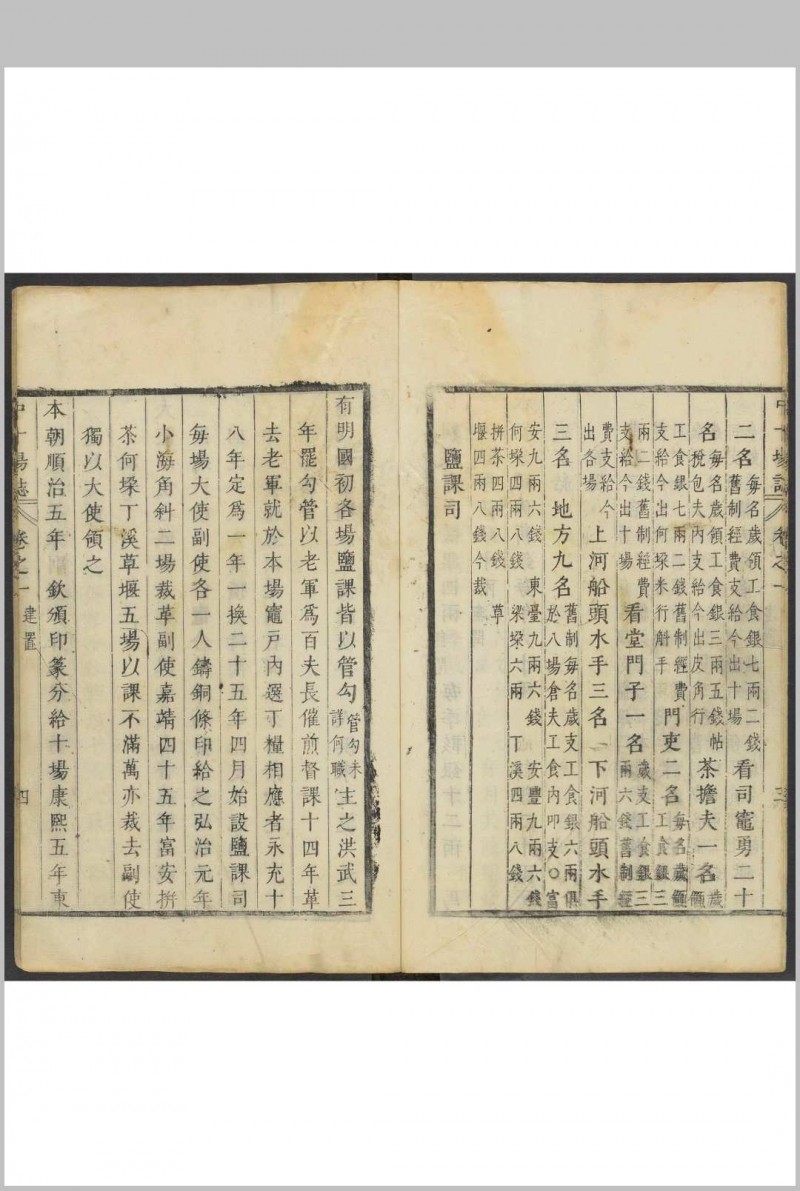 中十場誌 卷之一 三
二名 每名歲領工食銀七兩二錢舊制經費支給今出十場 看司竈勇二十
名 每名歲領工食銀三兩五錢帖稅包夫內支給今出皮角行 茶擔夫一名 歲領
工食銀七兩二錢舊制經費支給今出何垛米行斛手 門吏二名 每名歲領工食銀三
兩二錢舊制經費支給今出十場 看堂門子一名 歲支工食銀三兩六錢舊制經
費支給今出各場 上河船頭水手三名 下河船頭水手
三名 地方九名 舊制每名歲支工食銀六兩俱於八場倉夫工食內叩支○富
安九兩六錢 東臺九兩六錢 安豐九兩六錢
何垛四兩八錢 梁垛六兩 丁溪四兩八錢
拼茶四兩八錢 草
堰四兩八錢今裁
鹽課司
有明國初各場鹽課皆以管勾 管勾未詳何職 主之洪武三
年罷勾管以老軍爲百夫長催煎督課十四年革
去老軍就於本場竈戶內選丁糧相應者永充十
八年定爲一年一換二十五年四月始設鹽課司
每場大使副使各一人鑄銅條印給之弘治元年
小海角斜二場裁革副使嘉靖四十五年富安拼
茶何垛丁溪草堰五場以課不滿萬亦裁去副使
獨以大使領之
本朝順治五年 欽頒印篆分給十場康熙五年東
中十場誌 卷之一 建置 四